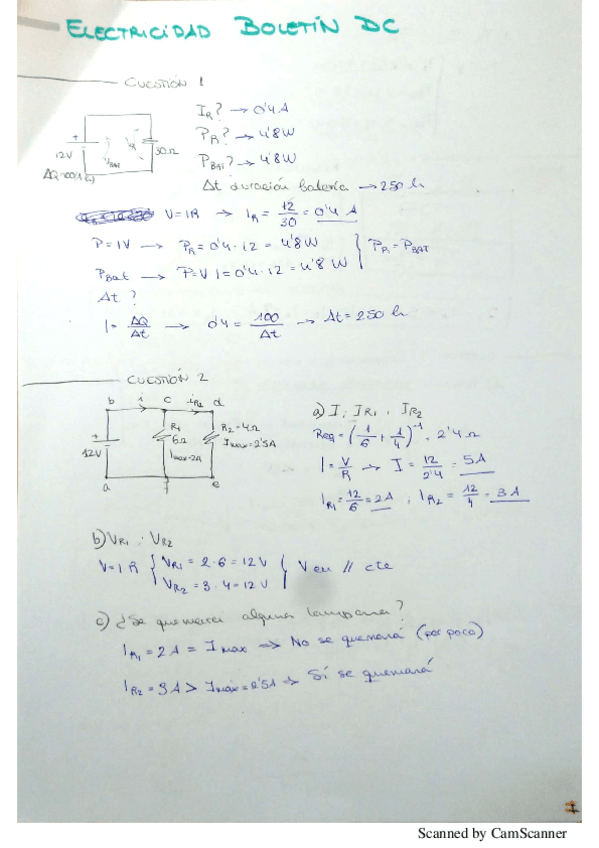 ELECTRICIDAD BOLETÍN DC
CUESTIÓN 1
12V
ΔQ=100(A·h)
VBAT
VR
30Ω
IR? → 0'4 A
PR? → 4'8 W
PBAT? → 4'8 W
Δt duración batería → 250 h
V=IR → IR = 12/30 = 0'4 A
P=IV → PR = 0'4 · 12 = 4'8 W } PR = PBAT
PBat → P=V I = 0'4 · 12 = 4'8 W
Δt ?
I = ΔQ/Δt → 0'4 = 100/Δt → Δt = 250 h
CUESTIÓN 2
b i c iR2 d
12V
R1
6Ω
Imax=2A
R2=4Ω
Imax=2'5A
a f e
a) I, IR1, IR2
Req = (1/6 + 1/4)⁻¹ = 2'4 Ω
I = V/R → I = 12/2'4 = 5A
IR1 = 12/6 = 2A ; IR2 = 12/4 = 3A
b) VR1, VR2
V=IR { VR1 = 2·6 = 12V
VR2 = 3·4 = 12V } V en // cte
c) ¿Se quemará alguna lámpara?
IR1 = 2A = Imax ⇒ No se quemará (por poco)
IR2 = 3A > Imáx = 2'5A ⇒ Sí se quemará
1
Scanned by CamScanner